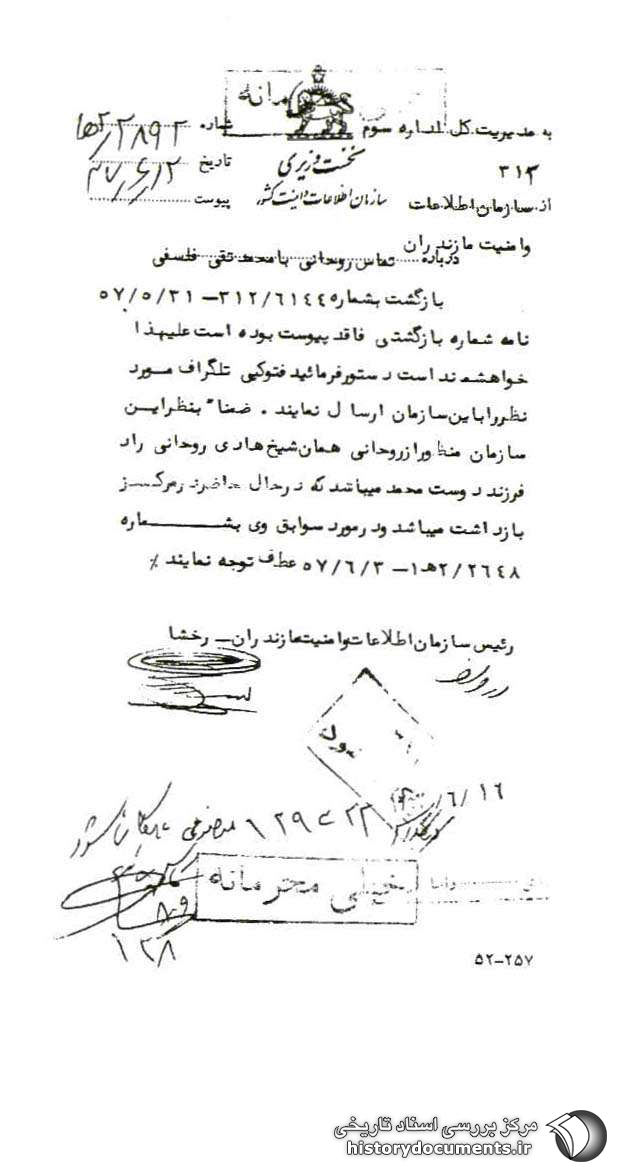 به مدیریت کل اداره سوم
۳۱۲
از سازمان اطلاعات
و امنیت مازندران
نخست وزیری
سازمان اطلاعات و امنیت کشور
شماره
تاریخ
پیوست
درباره تماس روحانی با محمد تقی فلسفی
بازگشت بشماره ۳۱۲/۶۱۴۴ – ۵۷/۵/۳۱
نامه شماره بازگشتی فاقد پیوست بوده است علیهذا
خواهشمند است دستور فرمائید فتوکپی تلگراف مورد
نظر را باین سازمان ارسال نمایند . ضمناً بنظر این
سازمان منظور از روحانی همان شیخ هادی روحانی راد
فرزند دوست محمد میباشد که در حال حاضر در مرکز
بازداشت میباشد و در مورد سوابق وی بشماره
۲/۲۶۴۸هـ۱ – ۵۷/۶/۳ عطف توجه نمایند ٪
رئیس سازمان اطلاعات و امنیت مازندران – رخشا
۶/۱۶
خیلی محرمانه
۵۲-۲۵۷
مرکز بررسی اسناد تاریخی
historydocuments.ir